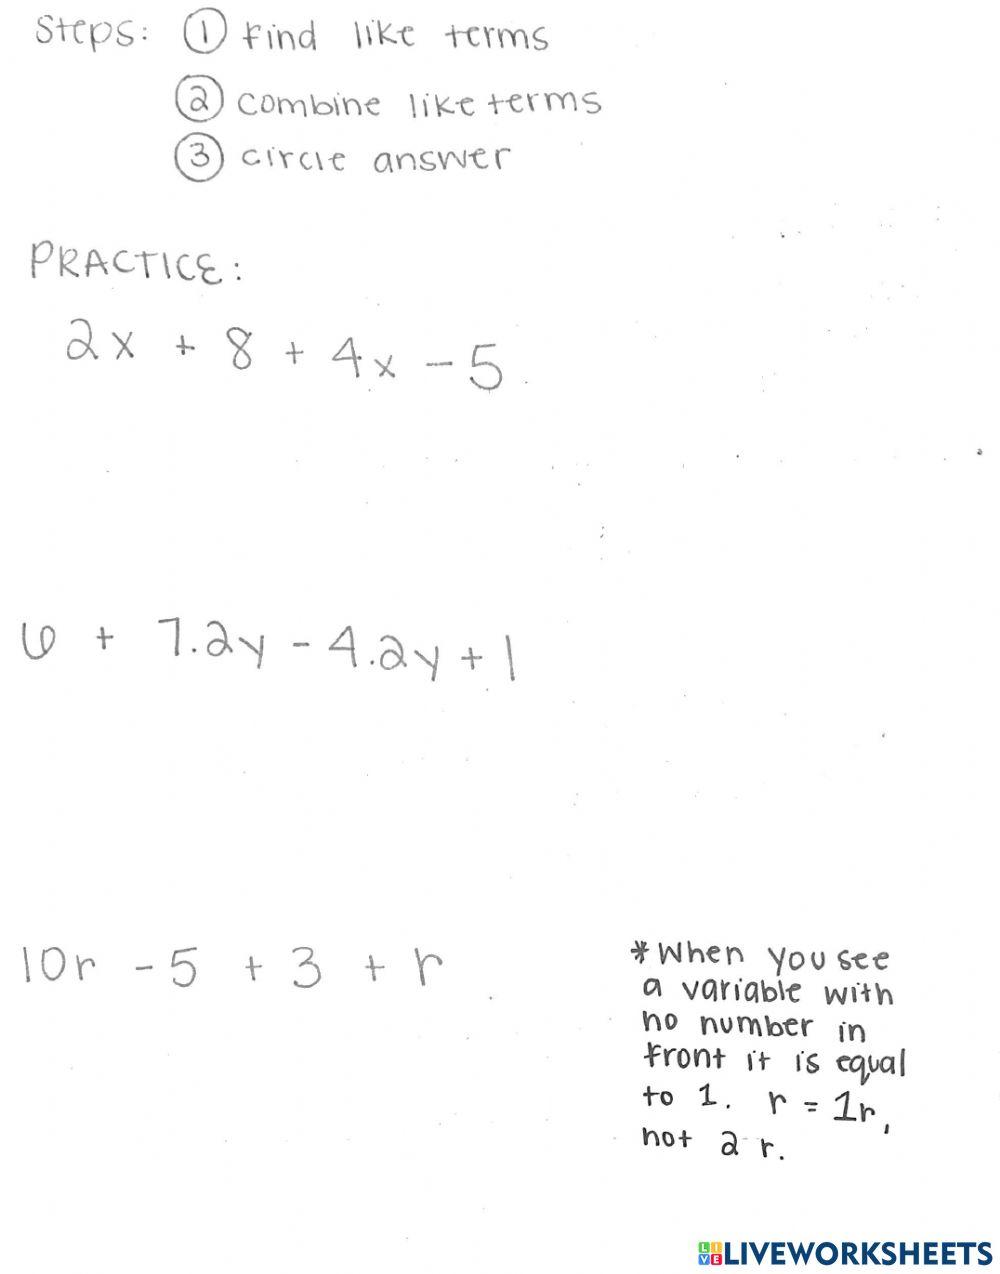 Steps: ① find like terms
② combine like terms
③ circle answer
PRACTICE:
2x + 8 + 4x - 5
6 + 7.2y - 4.2y + 1
10r - 5 + 3 + r
*When you see
a variable with
no number in
front it is equal
to 1. r = 1r,
not 2r.
LIVEWORKSHEETS